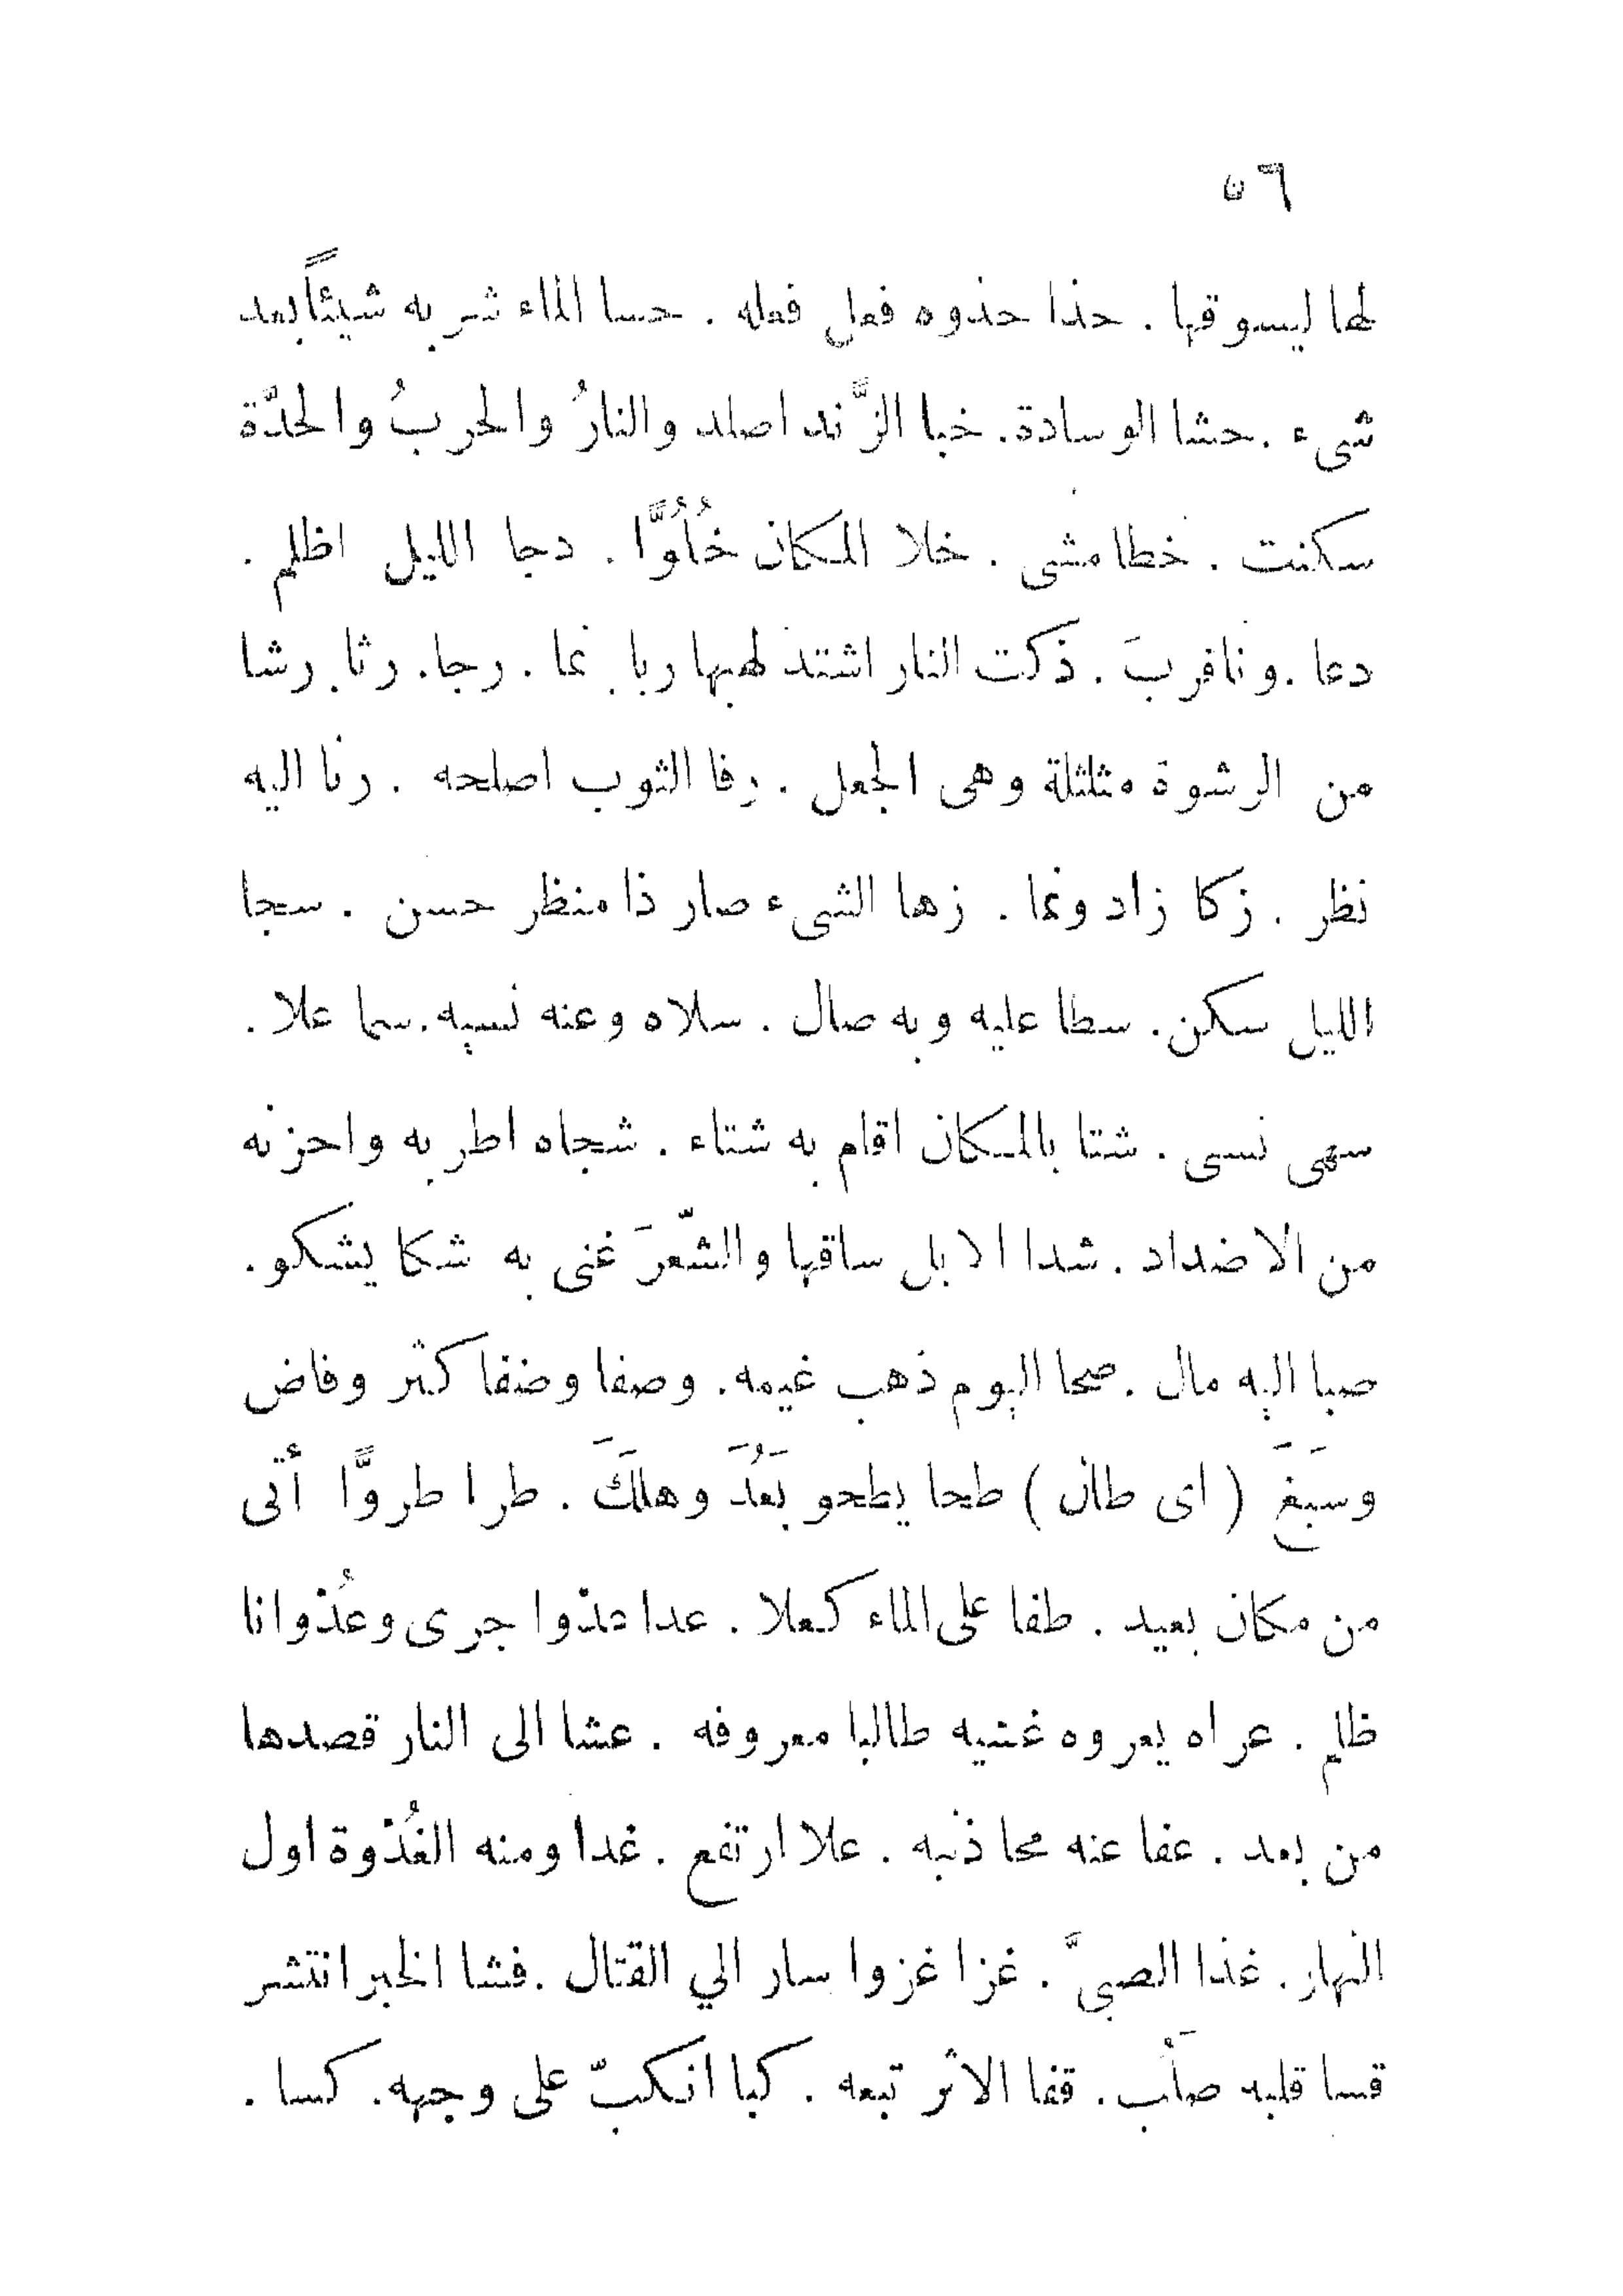 ٥٦
لها ليسوقها . حذا حذوه فعل فعله . حسا الماء شربه شيئاً بعد
شىء . حشا الوسادة . خبا الزَّند اصلد والنارُ والحربُ والحدَّة
سكنت . خطا مشى . خلا المكان خُلُوًّا . دجا الليل اظلم .
دعا . دنا قربَ . ذكت النار اشتد لهبها ربا . نما . رجا . رثا . رشا
من الرشوة مثلثلة وهى الجعل . رفا الثوب اصلحه . رنا اليه
نظر . زكا زاد ونما . زها الشىء صار ذا منظر حسن . سجا
الليل سكن . سطا عليه وبه صال . سلاه وعنه نسيه . سما علا .
سهى نسى . شتا بالمكان اقام به شتاء . شجاه اطربه واحزنه
من الاضداد . شدا الابل ساقها والشّعرَ غنى به شكا يشكو .
صبا اليه مال . صحا اليوم ذهب غيمه . وصفا وضفا كثر وفاض
وسبَغَ ( اى طال ) طحا يطحو بَعُدَ وهلَكَ . طرا طروًّا أتى
من مكان بعيد . طفا على الماء كعلا . عدا عدْوا جرى وعُدْوانا
ظلم . عراه يعروه غشيه طالبا معروفه . عشا الى النار قصدها
من بعد . عفا عنه محا ذنبه . علا ارتفع . غدا ومنه الغُدْوة اول
النهار . غذا الصبىَّ . غزا غزوا سار الي القتال . فشا الخبر انتشر
قسا قلبه صلُب . قفا الاثر تبعه . كبا انكبّ على وجهه . كسا .